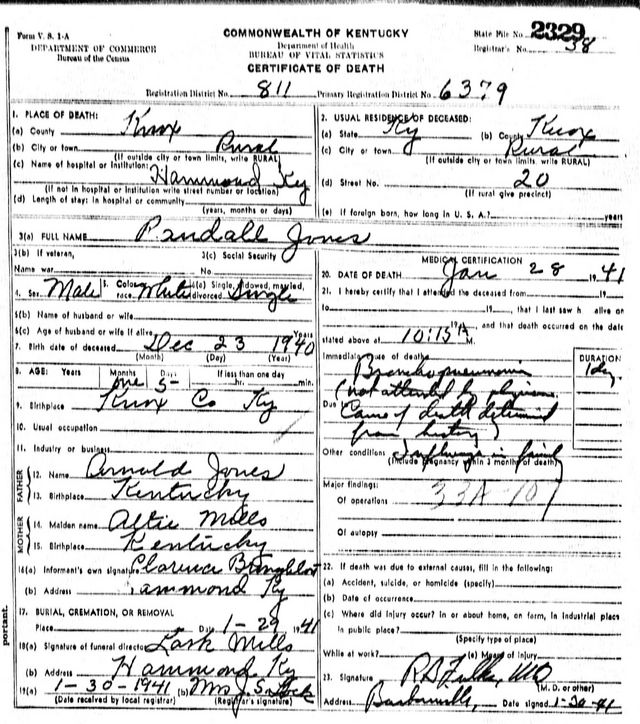 Form V. S. 1-A
DEPARTMENT OF COMMERCE
Bureau of the Census
COMMONWEALTH OF KENTUCKY
Department of Health
BUREAU OF VITAL STATISTICS
CERTIFICATE OF DEATH
State File No. 2329
Registrar's No. 38
Registration District No. 811 Primary Registration District No. 6379
1. PLACE OF DEATH:
(a) County Knox
(b) City or town Rural
(If outside city or town limits, write RURAL)
(c) Name of hospital or institution:
Hammond Ky
(If not in hospital or institution write street number or location)
(d) Length of stay: In hospital or community
(years, months or days)
2. USUAL RESIDENCE OF DECEASED:
(a) State Ky (b) County Knox
(c) City or town Rural
(If outside city or town limits, write RURAL)
(d) Street No. 20
(If rural give precinct)
(e) If foreign born, how long in U. S. A.? years
3(a) FULL NAME Randall Jones
3(b) If veteran,
Name war
3(c) Social Security
No
4. Sex Male 5. Color or race White 6(a) Single, widowed, married, divorced Single
6(b) Name of husband or wife
6(c) Age of husband or wife if alive Years
7. Birth date of deceased Dec 23 1940
(Month) (Day) (Year)
8. AGE: Years Months Days If less than one day
one 5 hr. min.
9. Birthplace Knox Co Ky
10. Usual occupation
11. Industry or business
FATHER
12. Name Arnold Jones
13. Birthplace Kentucky
MOTHER
14. Maiden name Altie Mills
15. Birthplace Kentucky
16(a) Informant's own signature Clarence
(b) Address Hammond Ky
17. BURIAL, CREMATION, OR REMOVAL
Place Date 1-29 1941
18(a) Signature of funeral director Lark Mills
(b) Address Hammond Ky
19(a) 1-30-1941 (b) Mrs J.
(Date received by local registrar) (Registrar's signature)
MEDICAL CERTIFICATION
20. DATE OF DEATH Jan 28 1941
21. I hereby certify that I attended the deceased from 19
to 19, that I last saw h alive on
19, and that death occurred on the date
stated above at 10:15 M
Immediate cause of death
DURATION
Bronchopneumonia 1 day
(not attended by physician
Due to Cause of death determined
from history)
Other conditions Influenza in family
(Include pregnancy within 3 months of death)
Major findings: 33A 107
Of operations
Of autopsy
22. If death was due to external causes, fill in the following:
(a) Accident, suicide, or homicide (specify)
(b) Date of occurrence
(c) Where did injury occur? In or about home, on farm, in industrial place
in public place?
(Specify type of place)
While at work? (e) Means of injury
23. Signature MD
(M. D. or other)
Address Barbourville, Date signed 1-30-41
portant.